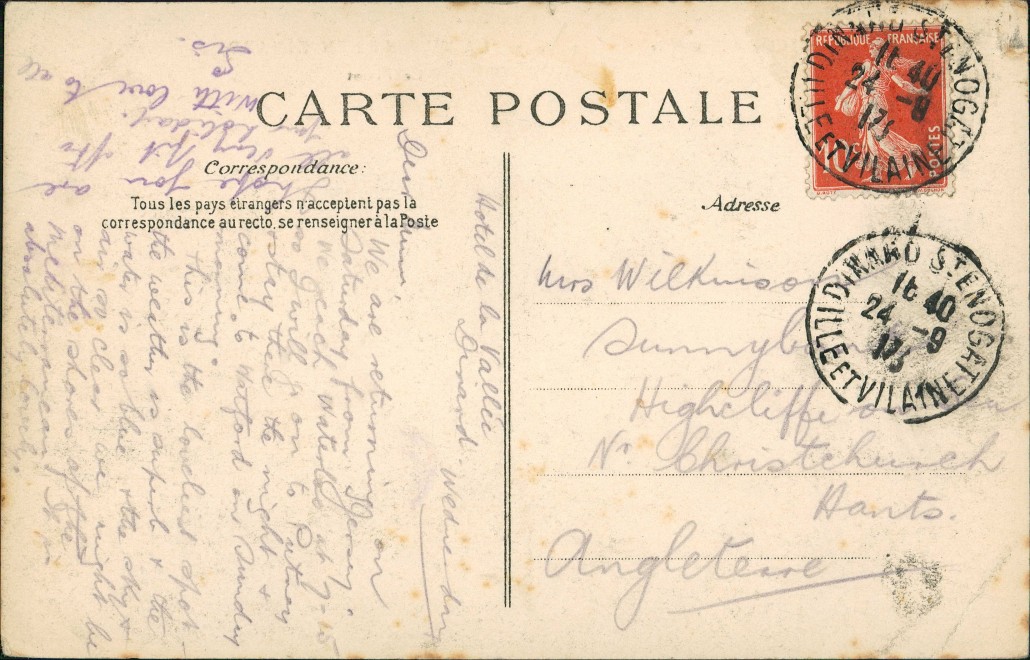 CARTE POSTALE
Correspondance:
Tous les pays étrangers n'acceptent pas la
correspondance au recto, se renseigner à la Poste
Adresse
REPUBLIQUE FRANÇAISE
10 c
POSTES
DINARD ST ENOGAT
ILLE ET VILAINE
11 40
24 - 9
13
DINARD ST ENOGAT
ILLE ET VILAINE
11 40
24 - 9
13
Mrs Wilkinson
Highcliffe on
Nr Christchurch
Hants.
Angleterre
Hotel de la Vallée
Dinard. Wednesday
Dear
We are returning on
Saturday from Jersey.
We reach Waterloo at 7-15
so I will go on to Putney
& stay there the night &
come to Watford on Sunday
morning.
This is the loveliest spot -
the weather is superb & the
water is so blue & the sky &
air so clear we might be
on the shores of the
Mediterranean. It is
absolutely lovely.
I hope you are
all very fit after
your holiday.
With love to all